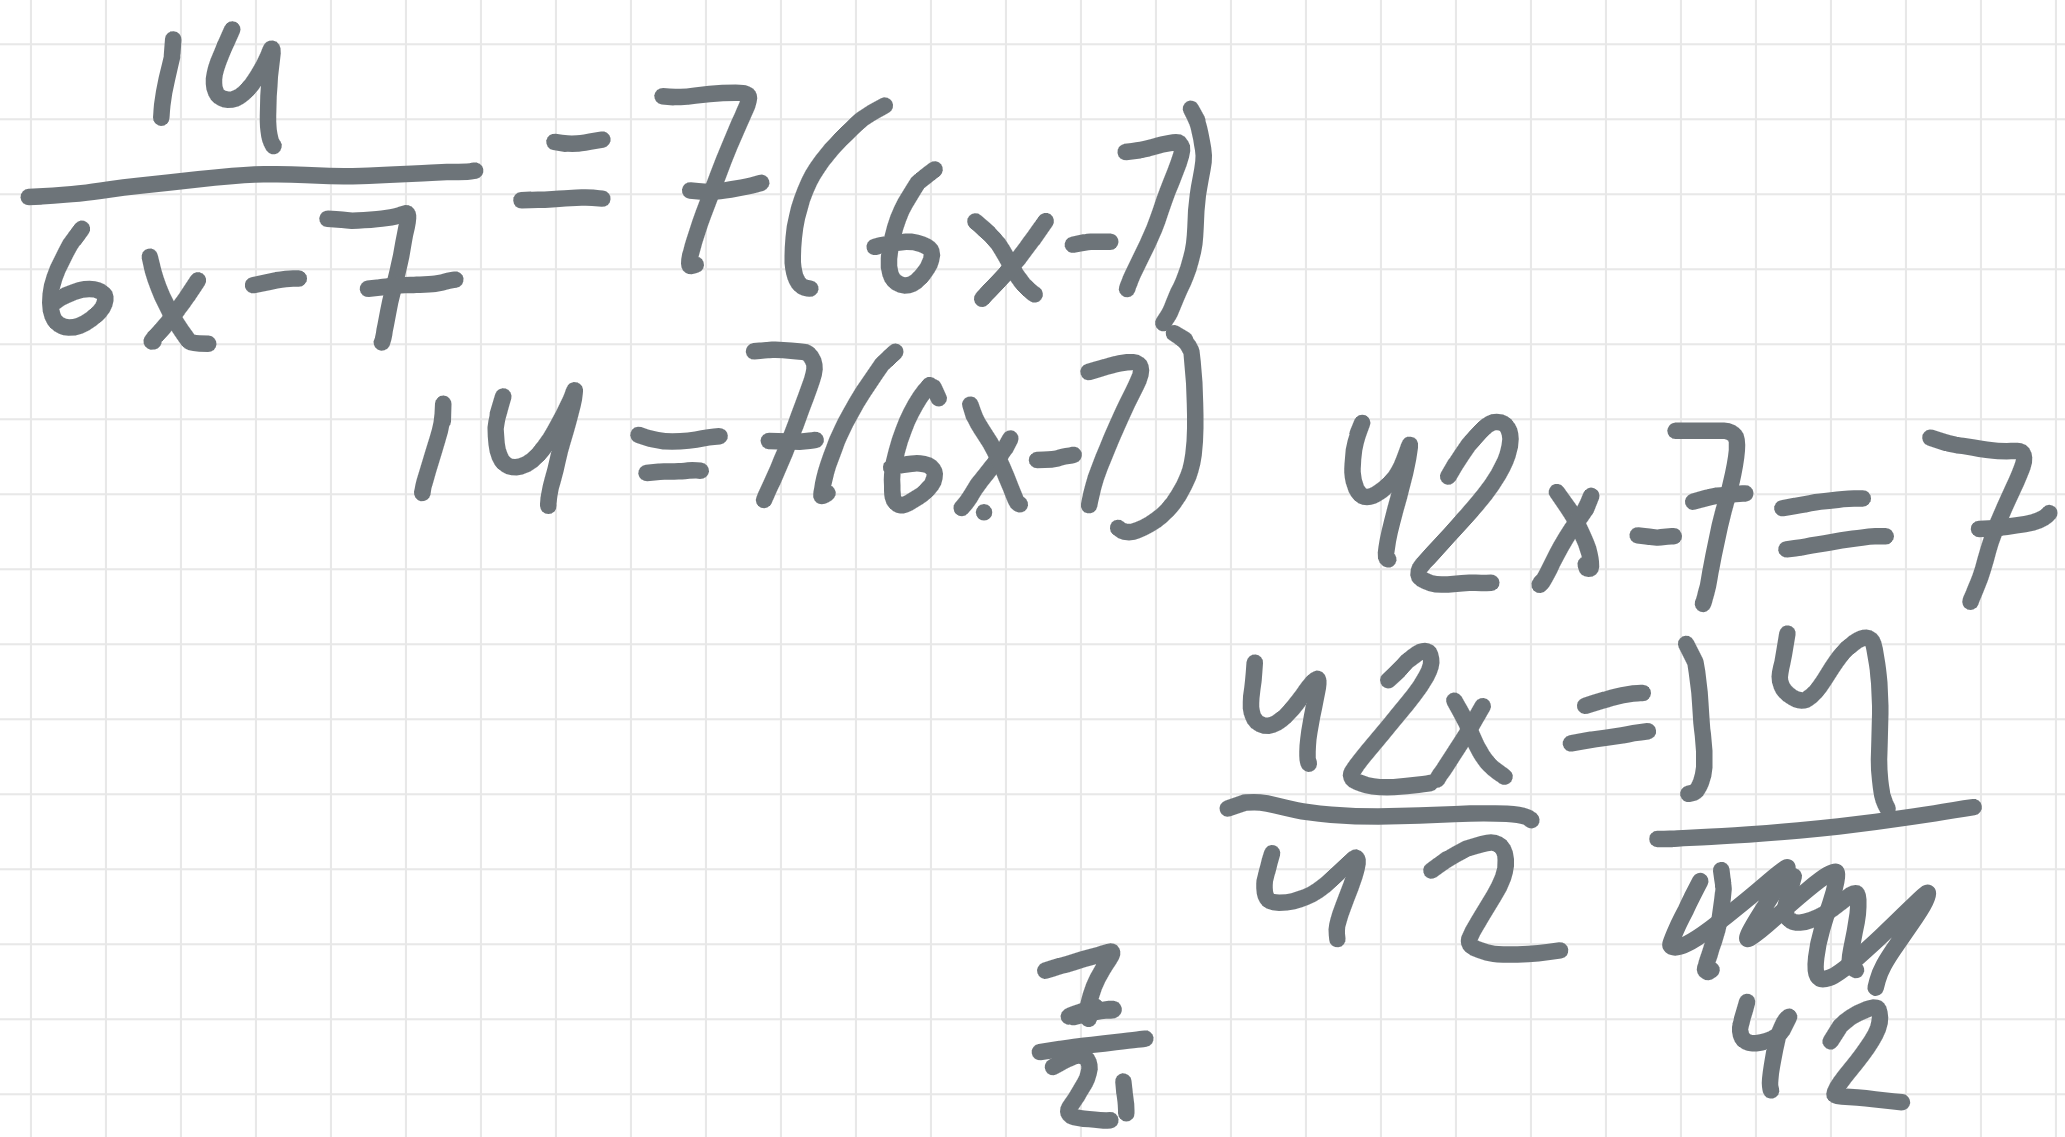 14/(6x-7) = 7(6x-7)
14 = 7(6x-7)
42x-7 = 7
42x/42 = 14/42
7/21